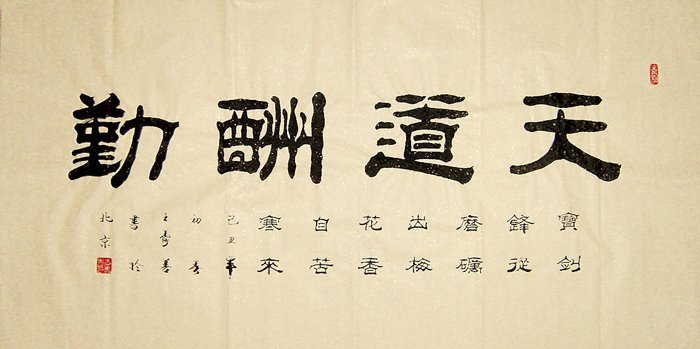 天道酬勤
寶劍
鋒從
磨礪
出梅
花香
自苦
寒來
己丑年
初春
王善
書於
北京